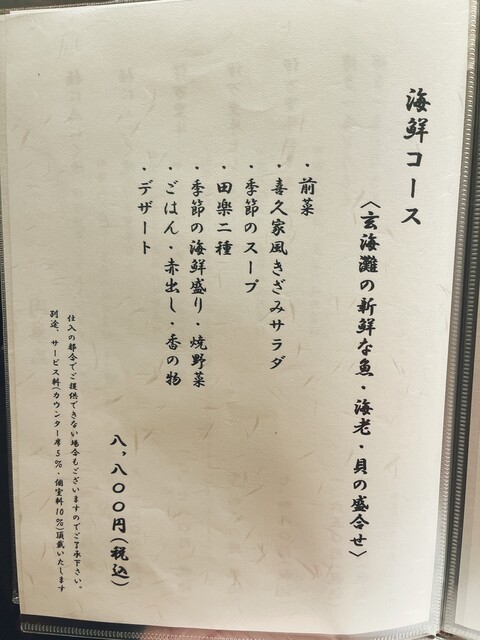 海鮮コース
〈玄海灘の新鮮な魚・海老・貝の盛合せ〉
・前菜
・喜久家風きざみサラダ
・季節のスープ
・田楽二種
・季節の海鮮盛り・焼野菜
・ごはん・赤出し・香の物
・デザート
八,八〇〇円(税込)
仕入の都合でご提供できない場合もございますのでご了承下さい。
別途、サービス料(カウンター席5%・個室料10%)頂戴いたします